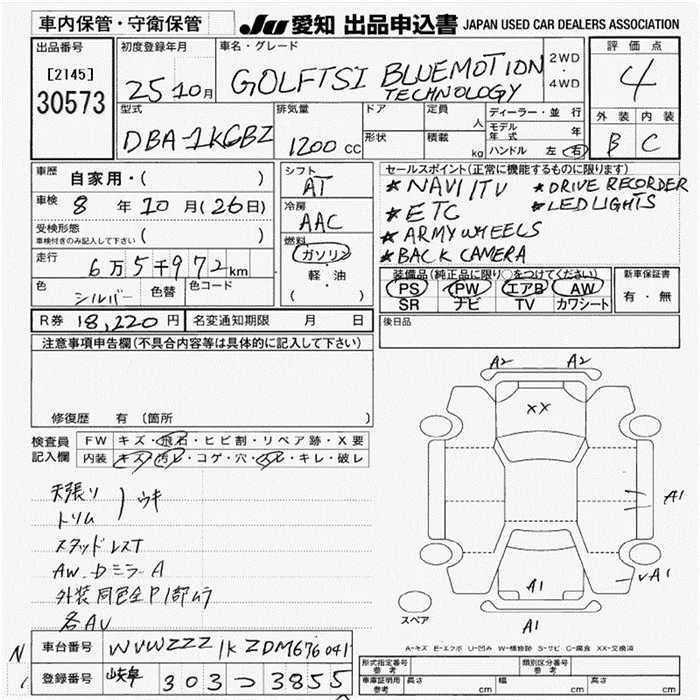 車内保管・守衛保管
JU 愛知 出品申込書 JAPAN USED CAR DEALERS ASSOCIATION
出品番号
[2145]
30573
初度登録年月
25 10月
車名・グレード
GOLFTSI BLUEMOTION
TECHNOLOGY
2WD
・
4WD
評価点
4
外装 内装
B C
型式
DBA-1KCBZ
排気量
1200 CC
ドア 定員 人
形状 積載 kg
ディーラー・並行
モデル年式 年
ハンドル 左 右
車歴
自家用・( )
車検 8 年 10 月 (26日)
受検形態
車検付きのみ記入して下さい ( )
走行
6万5千972km
色 シルバー 色替 色コード
シフト
AT
冷房
AAC
燃料
ガソリン
軽・油
( )
セールスポイント(正常に機能するものに限ります)
★NAVI/TV ★DRIVE RECORDER
★ETC ★LEDLIGHTS
★ARMYWHEELS
★BACK CAMERA
装備品(純正品に限り○をつけてください)
PS PW エアB AW
SR ナビ TV カワシート
新車保証書
有・無
R券 18,220円 名変通知期限 月 日
後日品
注意事項申告欄(不具合内容等は具体的に記入して下さい)
修復歴 有 (箇所
検査員
記入欄
FW キズ・飛石・ヒビ割・リペア跡・X要
内装 キズ・汚レ・コゲ・穴・スレ・キレ・破レ
天張リ
トリム ウキ
スタッドレスT
AW.Dミラー A
外装同色全P1部ムラ
各AU
A2 A2
XX
A1
A1
A1
A1
スペア
A-キズ E-エクボ U-凹み W-補修跡 S-サビ C-腐食 XX-交換済
車台番号 WVWZZZ1KZDM676041
登録番号 岐阜 303つ3855
形式指定番号
参考
類別区分番号
参考
車庫証明用
参考
長さ cm 幅 cm 高さ cm